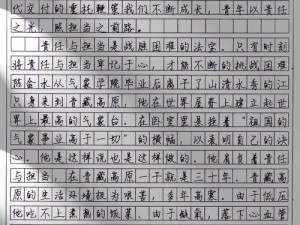 代交付的重托鞭策我们不断成长，青年以责任
之光，照担当之前路。
责任与担当是战胜困难的法宝。只有时刻
将责任与担当牢记于心，才能不断的挑战困难。
陈金水从气象学院毕业后离开了山清水秀的江
只身来到青藏高原，他在世界屋脊上建立起世
界上最高的气象台。在卧室里是挂着“祖国的
气象事业高于一切”的横幅，以表明自己的决
心。他是这样说也是这样做的。他肩负着责任
与担当，在青藏高原一干就是三十年。青藏高
原的生活环境担当艰苦，多年高寒。由于低压
他吃不上煮熟的饭菜、由于缺氧，落下心血管